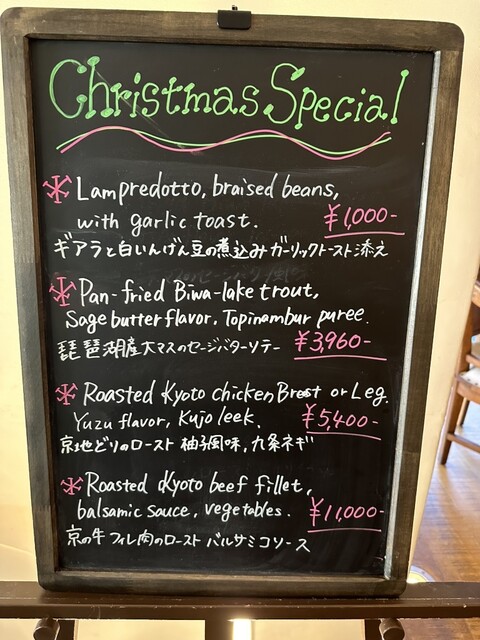 Christmas Special
Lampredotto, braised beans,
with garlic toast. ¥1,000-
ギアラと白いんげん豆の煮込みガーリックトースト添え
Pan-fried Biwa-lake trout,
Sage butter flavor, Topinambur puree.
琵琶湖産大マスのセージバターソテー ¥3,960-
Roasted Kyoto chicken Brest or Leg.
Yuzu flavor, Kujo leek. ¥5,400-
京地どりのロースト 柚子風味、九条ネギ
Roasted Kyoto beef fillet,
balsamic sauce, vegetables. ¥11,000-
京の牛フィレ肉のロースト バルサミコソース